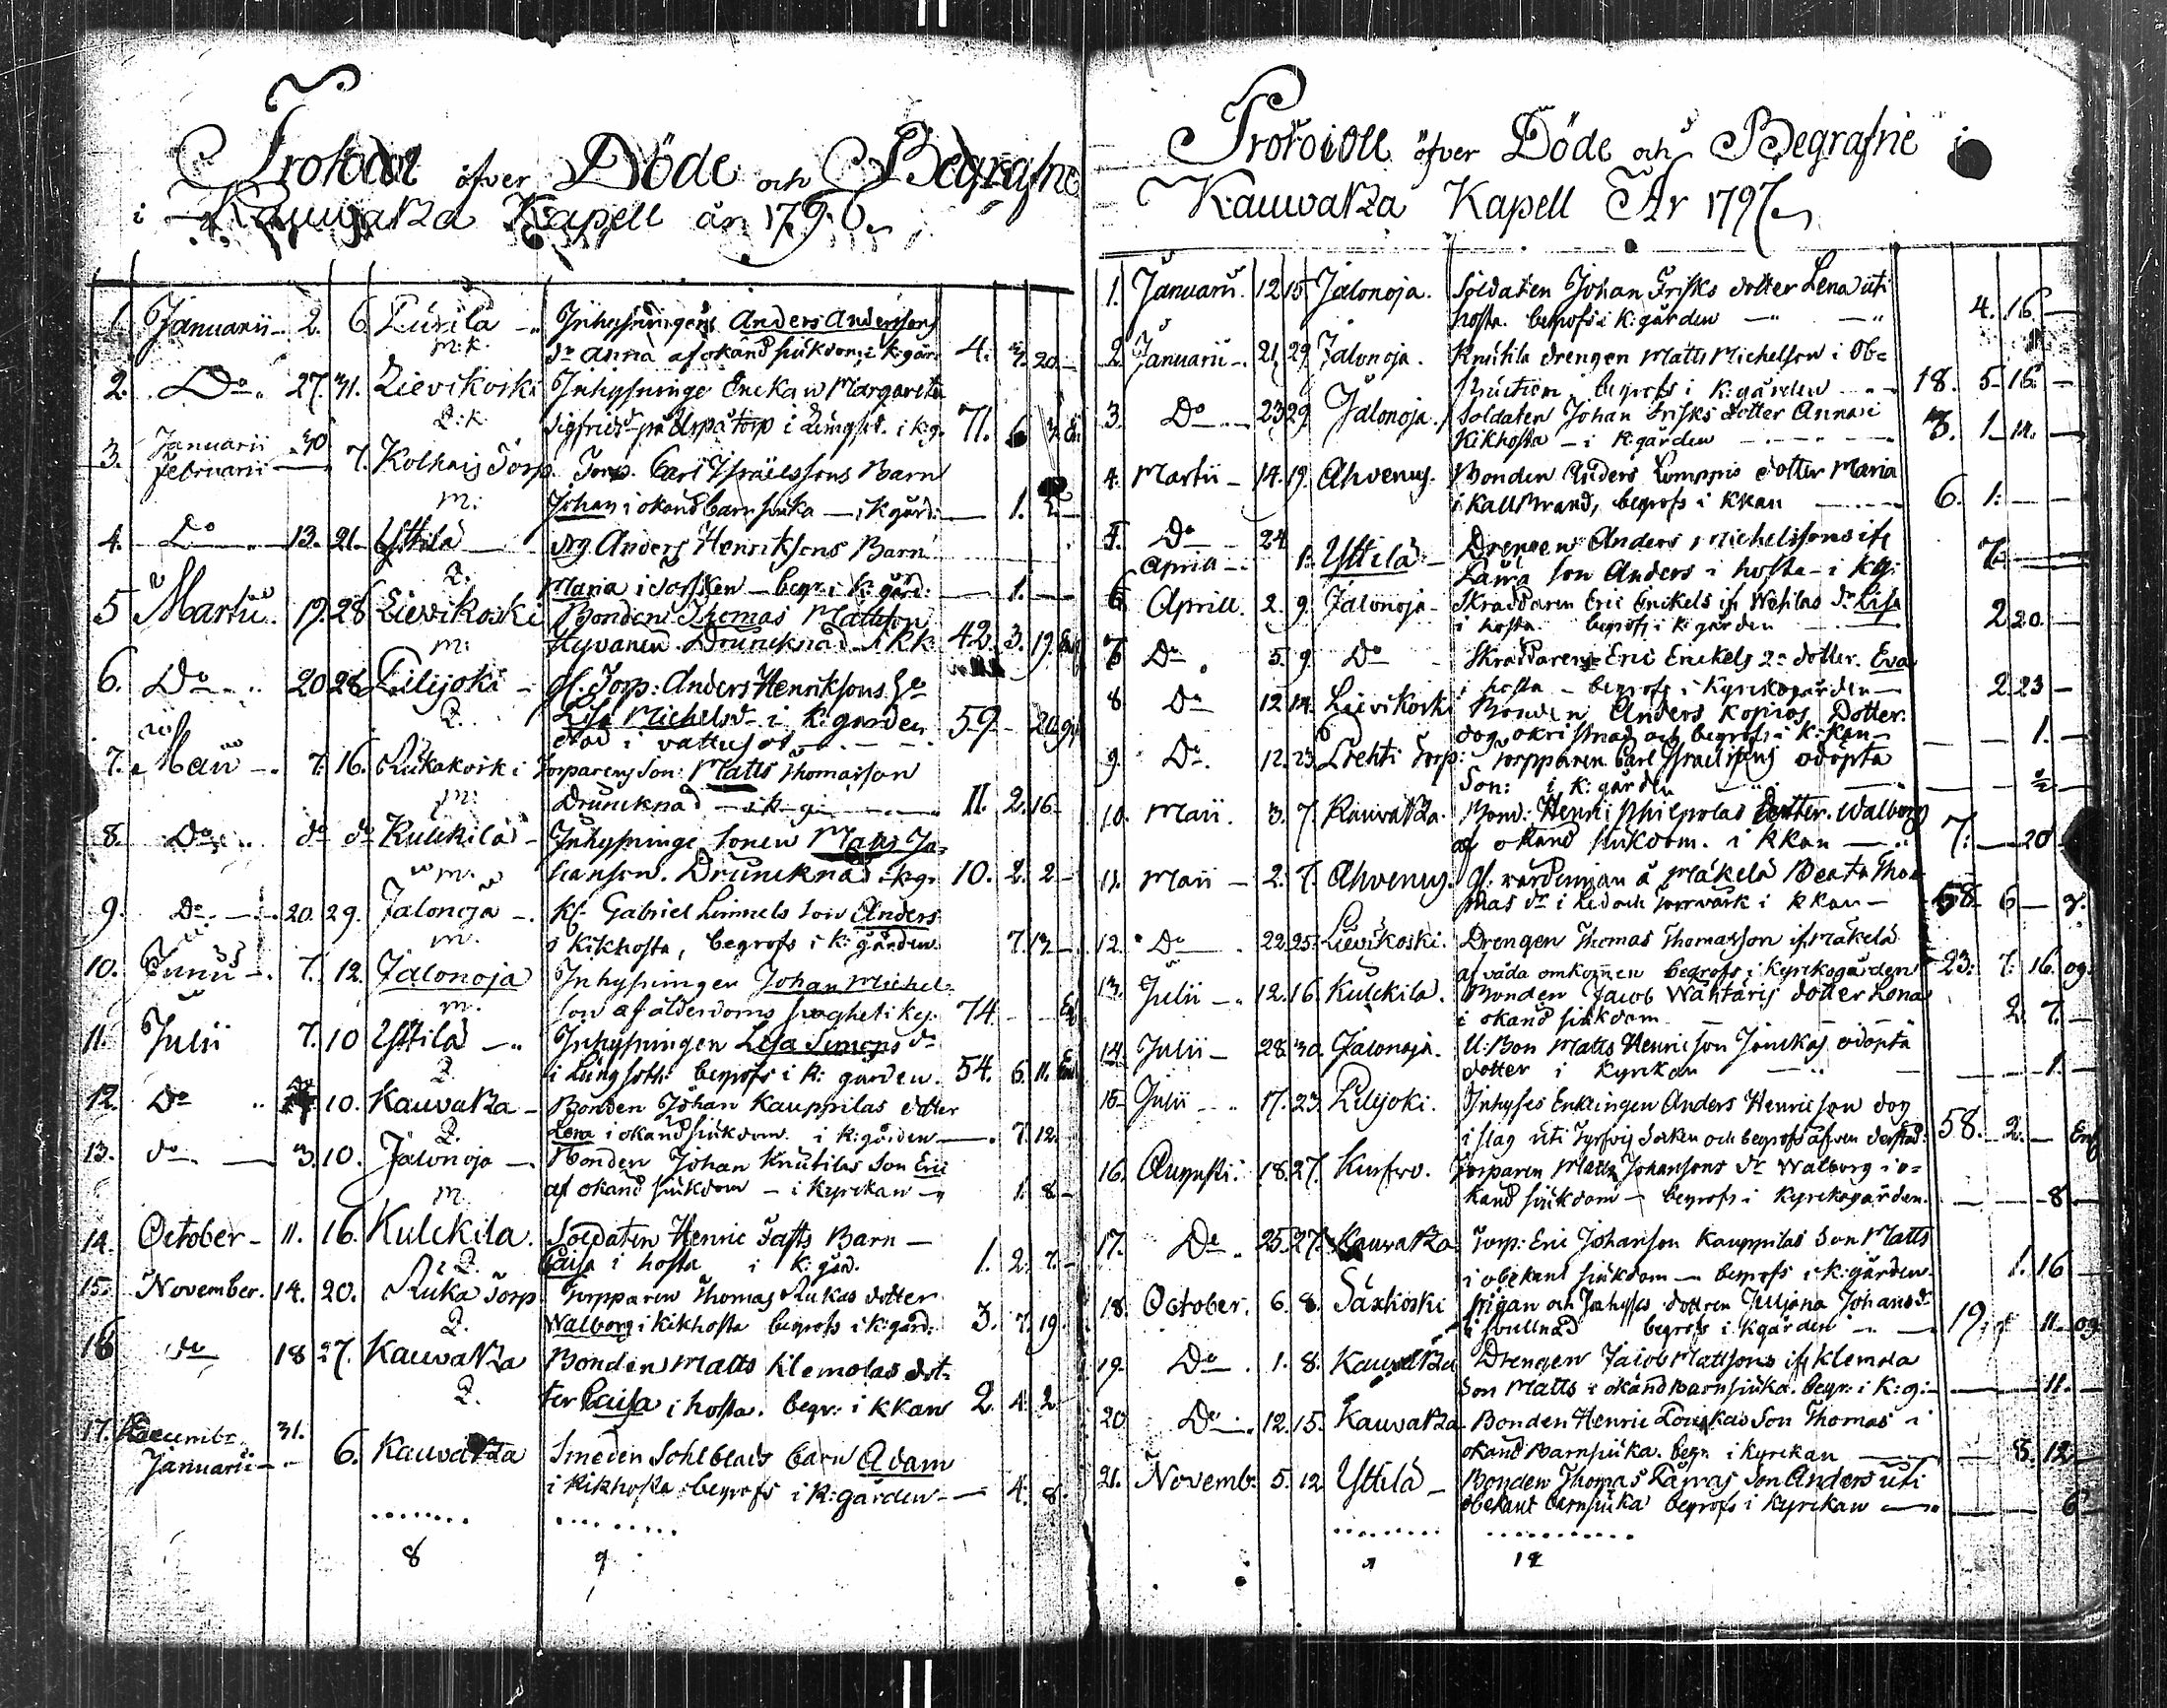 Protocoll öfver Döde och Begrafne
i Kauvatza Kapell år 1796.
1. Januarii 2. 6. Inhysningens Anders Anderssons
m.k. dr Anna af okänd siukdom, i k:gård. 4. 20.
2. Do. 27. 31. Lievikoski Inhysninge Enckan Margareta
Q.k. Sigfridsdr på torp i k:g. 71. 6
Januarii 30
3. Februarii 7. Torp Torp. Carl Israelssons Barn
m: Johan i okänd barnsiuka i k:gård: 1.
4. Do 13. 21. Yttilä drg Anders Henriksons Barn
Q. Maria i begr: i k:gård: 1.
5 Martii 19. 28 Lievikoski Bonden Thomas Mattsson
m: Hyvanen Drunknad i kk: 42. 3. 19.
6. Do 20 28 Piilijoki gl. Torp: Anders Henriksons
Q. Lisa Michelsdr i k:gården
död i vattusot 59 20
7. Maii 7. 16. Rukakoski Torparens Son: Matts Thomasson
m: Drunknad i k-g: 11. 2. 16
8. Do do do Kulckila Inhysninge Sonen Matts Jo-
m. hanson. Drunknad i k:g: 10. 2. 2
9. Do 20. 29. Jalonoja Gabriel son Anders
m. i kikhosta, begrofs i k:gården 7. 13
10. Junii 7. 12. Jalonoja Inhysningen Johan Michel-
m. son af ålderdoms svaghet i k:g: 74.
11. Julii 7. 10 Yttilä Inhysningen Lisa Simons dr
Q. i Lungsoth: begrofs i k: gården. 54. 6. 11.
12. Do 10. Kauvatza Bonden Johan Kauppilas dotter
Q. Lena i okänd siukdom. i k:gården 7. 12.
13. do 3. 10. Jalonoja Bonden Johan Knutilas Son Eric
m. af okänd siukdom i kyrckan 1. 8
14. October 11. 16. Kulckila. Soldaten Henric Fasts Barn
Q. Caisa i hosta i k:gård. 1. 2. 7.
15. November. 14. 20. Ruka Torp Torpparen Thomas Rukas dotter
Q. Walborg i kikhosta begrofs i k:gård: 3. 7. 19.
16 do 18 27. Kauvatza Bonden Matts Klemolas dot-
Q. ter Caisa i hosta. begr: i kkan 2. 4. 2
17. Decembr. 31.
Januarii 6. Kauvatza Smeden Sohlblads barn Adam
i kikhosta begrofs i k:gården 4. 8.
8 9
Protocoll öfver Döde och Begrafne i
Kauvatza Kapell År 1797.
1. Januarii. 12 15 Jalonoja. Soldaten Johan Frisks dotter Lena uti
hosta. begrofs i k:gården 4. 16.
2. Januarii 21. 29. Jalonoja. Knutila drengen Matts Michelson i Ob-
struction begrofs i k:gården 18. 5. 16.
3. Do 23 29. Jalonoja. Soldaten Johan Frisks dotter Anna i
kikhosta i k:gården 3. 1. 14.
4. Martii 14. 19. Ahvenus. Bonden Anders Lomppis dotter Maria
i kallbrand, begrofs i kkan 6. 1.
5. Do 24
Aprill 1. Yttilä Drengen Anders Michelssons ifr
son Anders i hosta i kg: 7.
6 Aprill. 2. 9. Jalonoja Skraddaren Eric Enckels ifr dr Lisa
i hosta begrofs i k:gården 2 20
7 Do. 5. 9. Do Skraddaren Eric Enckels 2a dotter. Eva
i hosta begrofs i kyrckogården 2 23
8 Do 12 14. Lievikoski Bonden Anders Kopios Dotter.
dog okristnad och begrofs i k:kan 1.
9. Do. 12. 23. Torp: Torpparen Carl Israelssons odöpta
Son: i k:gården ½
10. Maii. 3. 7. Kauvatza. Bond: Henric Philpolas dotter. Walborg
af okänd siukdom. i kkan 7: 20
11. Maii 2. 7. Ahvenus. Gl: värdinnan å Mäkelä Beata Tho-
mas dr i Led och torrvärk i kkan 58 6 g:
12. Do 22 25 Lievikoski. Drengen Thomas Thomasson ifr Mäkelä
af våda omkommen begrofs i kyrckogården 23: 7. 16. og.
13. Julii 12. 16. Kulckila. Bonden Jacob Wähtäris dotter
i okänd siukdom 2. 7.
14. Julii 28. 30. Jalonoja. U:Bon Matts Henricson odöpta
dotter i kyrckan 1.
15 Julii 17. 23. Piilijoki. Inhyses Enklingen Anders Henricson dog
i slag uti Tyrfvis Socken och begrofs äfven derstäd: 58. 2. Enk
16. Augusti. 18. 27. Torparen Matts Johansons dr Walborg i o-
känd siukdom begrofs i kyrckogården. 8
17. Do. 25. 27. Kauvatza Torp: Eric Johanson Kauppilas Son Matts
i obekant siukdom begrofs i k:gården. 1. 16
18. October. 6. 8. Säxkoski pigan och Inhyses dottren Juliana Johansdr
i svullnad begrofs i kgården 19. 11. og
19. Do. 1. 8. Kauvatza Drengen Jacob Mattsons ifr Klemola
Son Matts i okänd Barnsiuka. begr: i k:g: 11.
20. Do. 12. 15. Kauvatza Bonden Henric Son Thomas i
okänd Barnsiuka. begr. i kyrckan 5. 12
21. Novemb: 5. 12 Yttilä Bonden Thomas son Anders uti
obekant barnsiuka begrofs i kyrckan 6
12